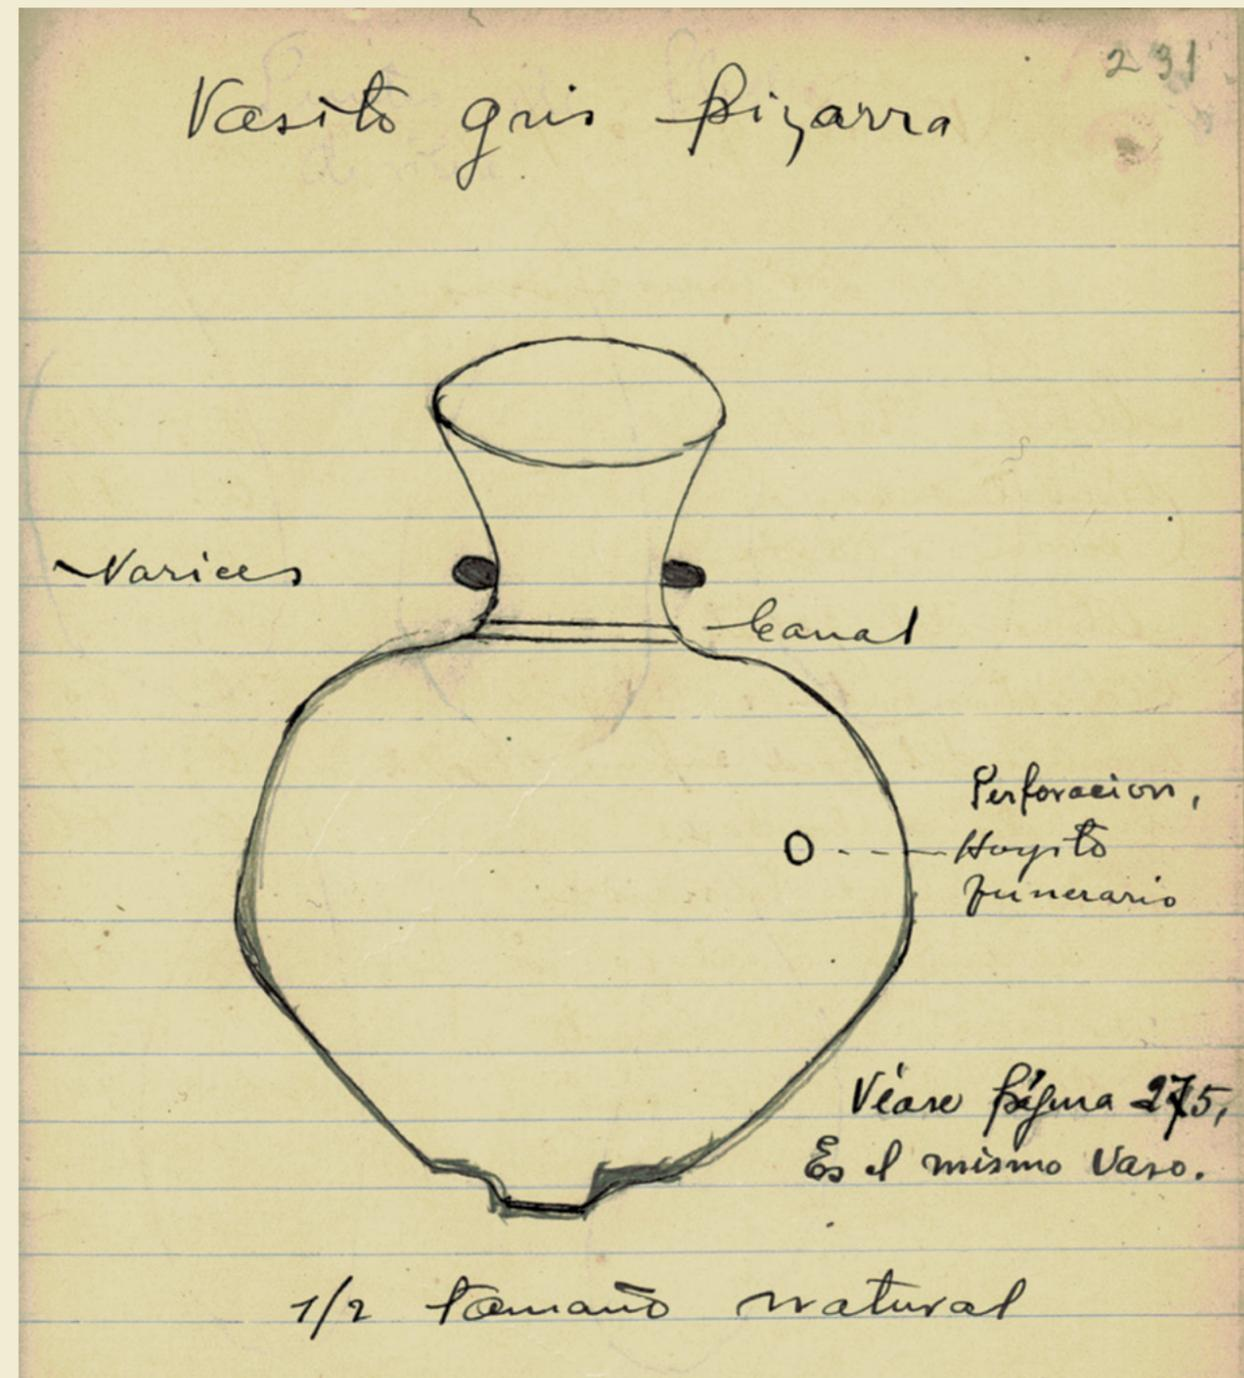 231
Vasito gris pizarra
Varices
Canal
Perforacion,
Hoyito
funerario
Véase página 275,
Es el mismo Vaso.
1/2 tamaño natural